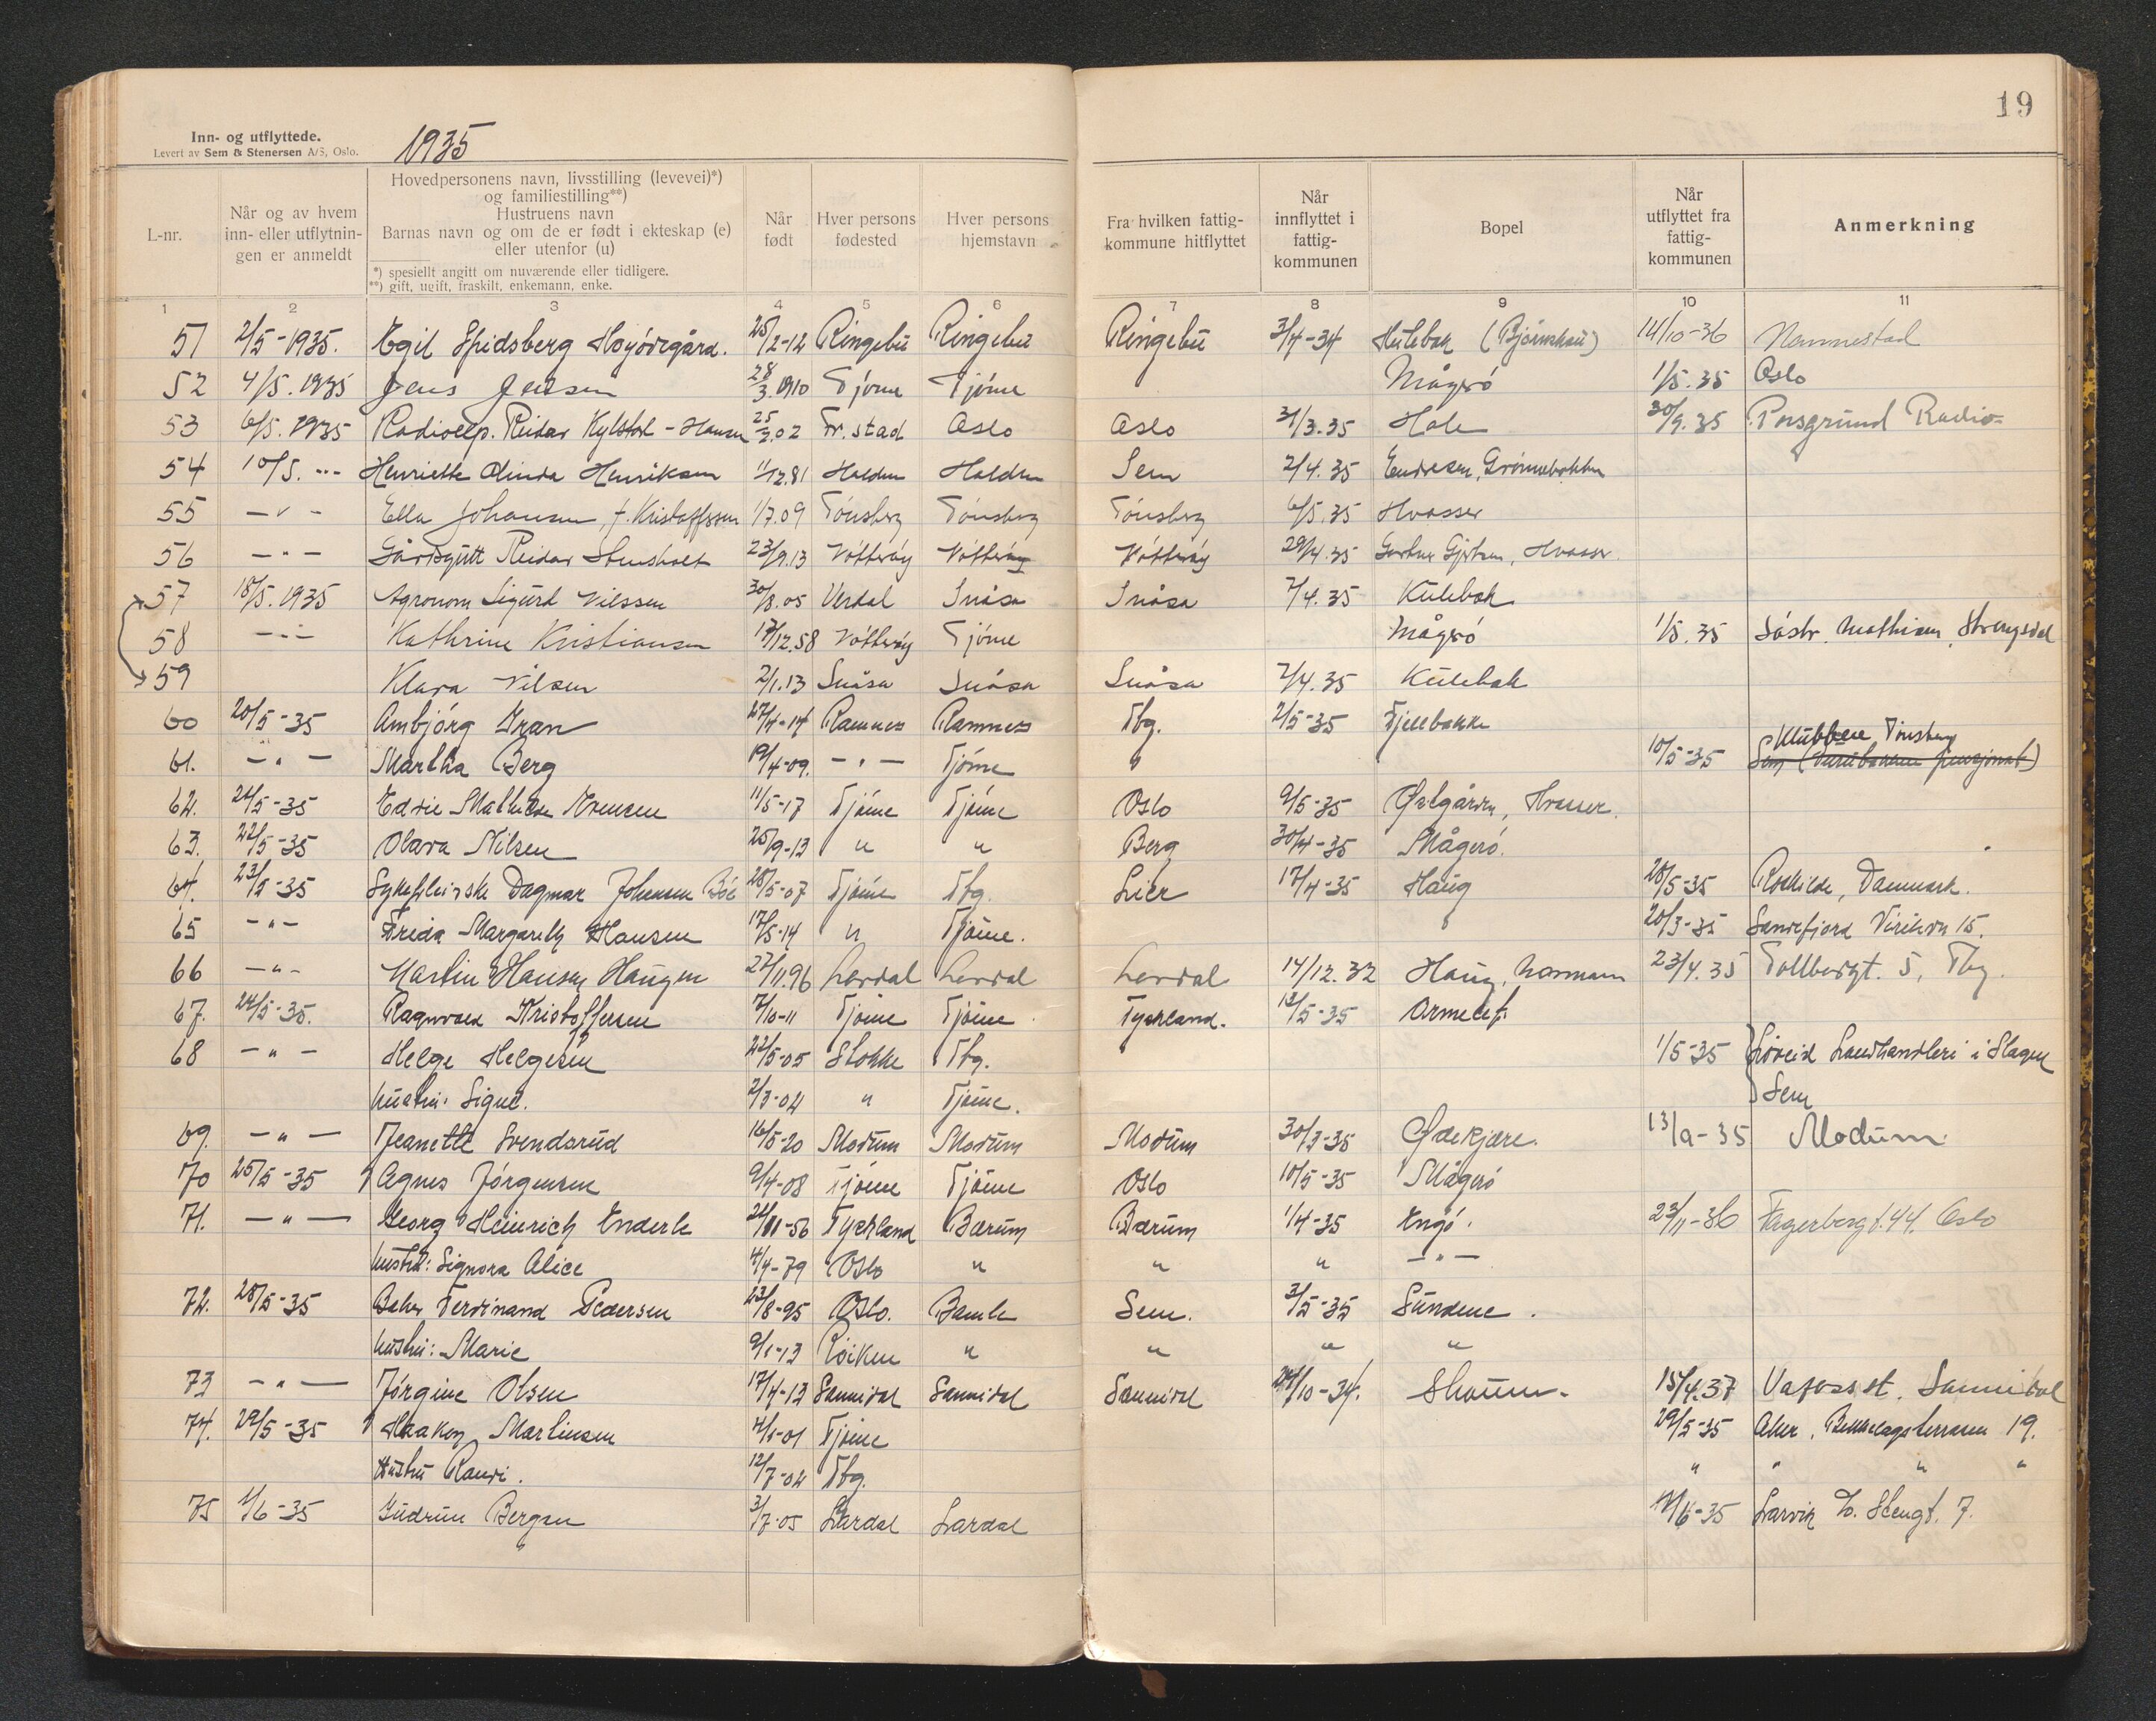 19
Inn- og utflyttede.
Levert av Sem & Stenersen A/S, Oslo.
1935
L-nr.
Når og av hvem inn- eller utflytningen er anmeldt
Hovedpersonens navn, livsstilling (levevei)*) og familiestilling**)
Hustruens navn
Barnas navn og om de er født i ekteskap (e) eller utenfor (u)
*) spesiellt angitt om nuværende eller tidligere.
**) gift, ugift, fraskilt, enkemann, enke.
Når født
Hver persons fødested
Hver persons hjemstavn
Fra hvilken fattigkommune hitflyttet
Når innflyttet i fattigkommunen
Bopel
Når utflyttet fra fattigkommunen
Anmerkning
1 2 3 4 5 6 7 8 9 10 11
51 2/5-1935. Egil Spidsberg 25/2-12 Ringebu Ringebu Ringebu 3/4-34 Hulebak (Bjørnshau) 14/10-36 Nannestad
52 4/5.1935 Jens Jensen 28/3 1910 Tjøme Tjøme Mågerö 1/5.35 Oslo
53 6/5.1935 Radioexp. Reidar Kylstad-Hansen 25/2.02 Fr.stad Oslo Oslo 31/3.35 Hole 30/9.35 Porsgrund Radio-
54 10/5. -"- Henriette Olinda Henriksen 11/12.81 Halden Halden Sem 2/4.35 Endresen, Grønnebakken
55 -"- Ella Johansen, f. Kristoffersen 1/7.09 Tönsberg Tönsberg Tönsberg 6/5.35 Hvasser
56 -"- Gårdsgutt Reidar Stensholt 23/9.13 Nötteröy Nötteröy Nötteröy 29/4.35 Gartner Gjertsen, Hvasser
57 18/5.1935 Agronom Sigurd Nilssen 30/8.05 Verdal Snåsa Snåsa 7/4.35 Kulebak
58 -"- Kathrine Kristiansen 17/12.58 Nötteröy Tjöme Mågerö 1/5.35 Söstr. Mathisen, Strengsdal
59 Klara Nilsen 2/1.13 Snåsa Snåsa Snåsa 7/4.35 Kulebak
60 20/5-35 Ambjörg Gran 27/4-14 Ramnes Ramnes Tbg. 2/5-35 Fjellbakke
61. -"- Martha Berg 19/4-09. -"- Tjöme 10/5-35 Klubben Tønsberg
62. 21/5-35 Edvin Mathisen 11/5-17 Tjöme Tjöme Oslo 9/5-35 Østgården, Hvasser.
63. 22/5-35 Olava Nilsen 25/9-13 " " Berg 30/4-35 Mågerö.
64. 23/5-35 Sykepleierske Dagmar Johansen Böe 28/5-07 Tjöme Tbg. Lier 17/4-35 Haug 28/5-35 Roskilde, Danmark.
65 -"- Frida Margareth Hansen 17/5-14 " Tjöme. 20/3-35 Sandefjord Virikvn 15.
66 -"- Martin Hansen Haugen 27/11.96 Lardal Lardal Lardal 14/12.32 Haug, Normann 23/4.35 Tollbogt. 5, Tbg.
67. 24/5-35. Ragnvald Kristoffersen 7/10-11 Tjöme Tjöme Tyskland. 13/5-35 Ormelet.
68 -"- Helge Helgesen 23/5-05 Stokke Tbg. 1/5-35 Löveid Landhandleri i Slagen
hustru: Signe. 2/3-04 " Tjöme. Sem
69. -"- Jeanette Svendsrud 16/5-20 Modum Modum Modum 30/3-35 Ødekjære. 13/9-35 Modum
70 25/5-35 Agnes Jörgensen 9/4-08 Tjöme Tjöme Oslo 10/5-35 Mågerö
71. -"- Georg Heinrich Enderle 21/11-56 Tyskland Bærum Bærum 1/4-35 Engö. 23/11-36 Fagerborgt. 44. Oslo
hustru: Signora Alice 4/4-79 Oslo " " " -"-
72. 28/5-35 Baker Ferdinand Pedersen 23/8-95 Oslo. Bamle Sem. 3/5-35 Sundene.
hustru: Marie 9/1-13 Röiken " " " "
73 -"- Jörgine Olsen 17/4-13 Sannidal Sannidal Sannidal 24/10-34. Skauen. 15/4.37 Vafoss st. Sannidal
74. 29/5-35 Haakon Martinsen 4/1-01 Tjöme 29/5-35 Aker, Bekkelagsterrassen 19.
Hustru Randi. 12/7-04 Tbg. " " " "
75 1/6-35 Gudrun Bergan 3/7-05 Lardal Lardal Larvik 7.